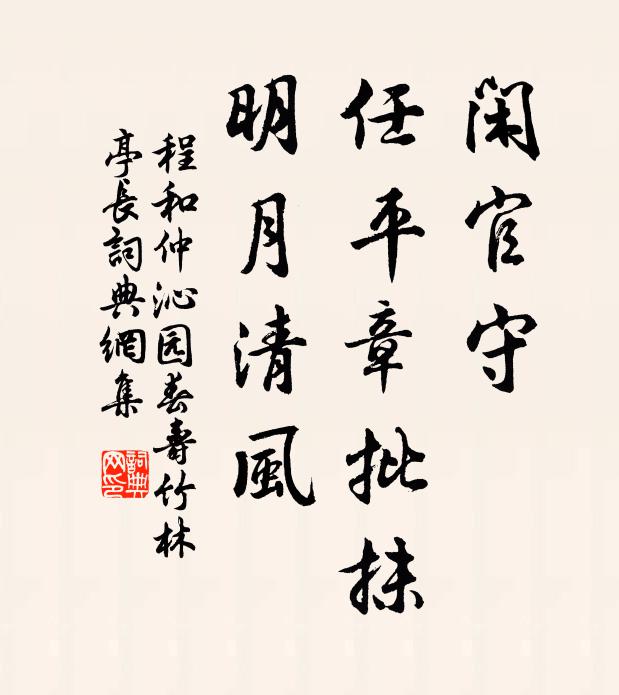 閑官守
任平章批抹
明月清風
程和仲沁园春壽竹林
亭長詞典網集
詞典
网印